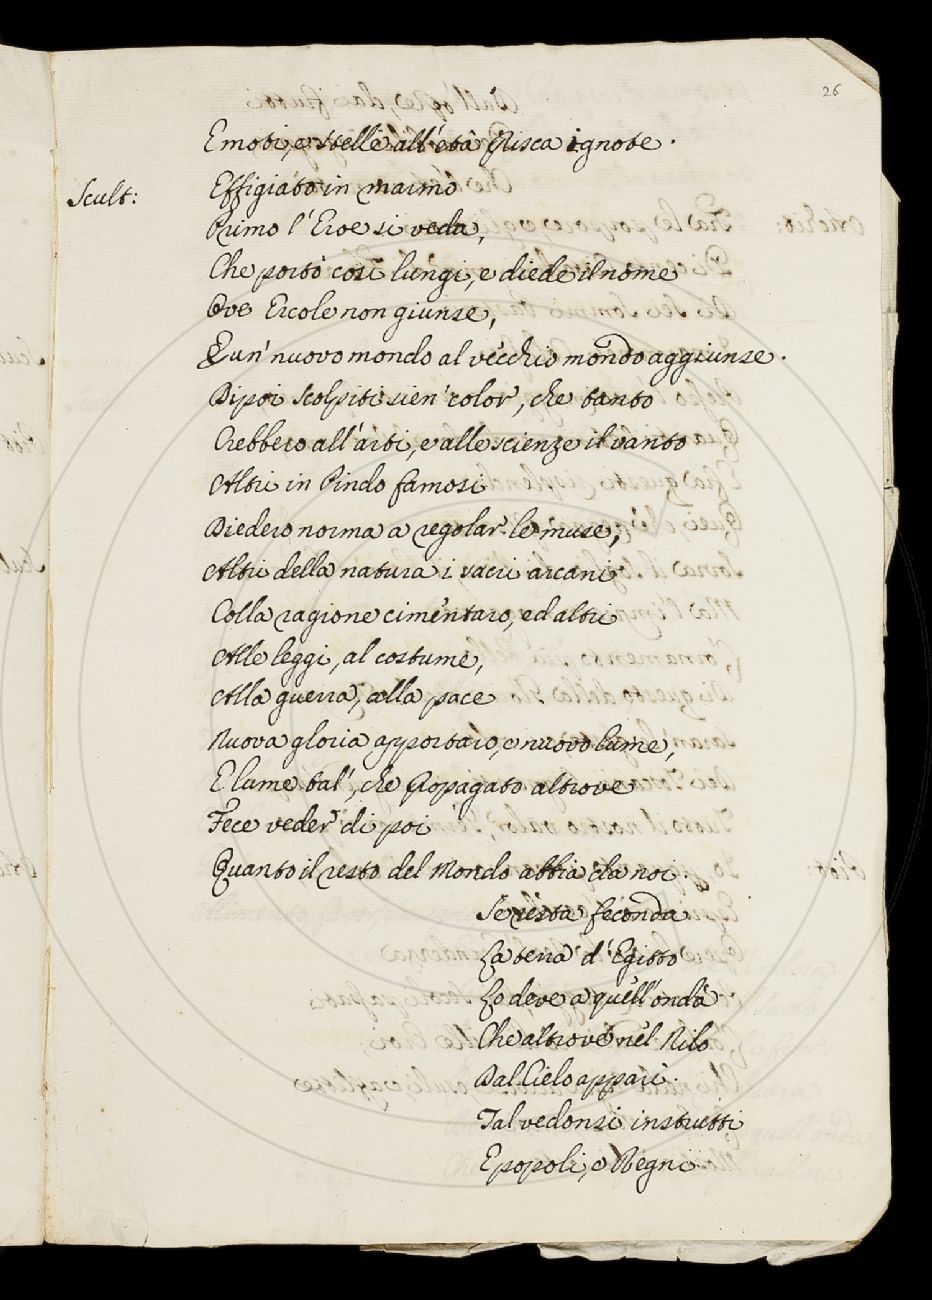 26
E moti, e stelle all'età prisca ignote.
Scult: Effigiato in marmo
Primo l'Eroe si veda,
Che portò così lungi, e diede il nome
Ove Ercole non giunse,
E un' nuovo mondo al vecchio mondo aggiunse.
Dipoi scolpiti sien' color', che tanto
Crebbero all'arti, e alle scienze il vanto
Altri in Pindo famosi
Diedero norma a regolar' le muse,
Altri della natura i varii arcani
Colla ragione cimentaro, ed altri
Alle leggi, al costume,
Alla guerra, alla pace
Nuova gloria apportaro, e nuovo lume,
E lume tal', che propagato altrove
Fece veder' di poi
Quanto il resto del Mondo abbia da noi.
Se resta feconda
La terra d'Egitto
Lo deve a quell'onda
Che altrove nel Nilo
Dal Cielo apparì.
Tal vedonsi instrutti
E popoli, e Regni